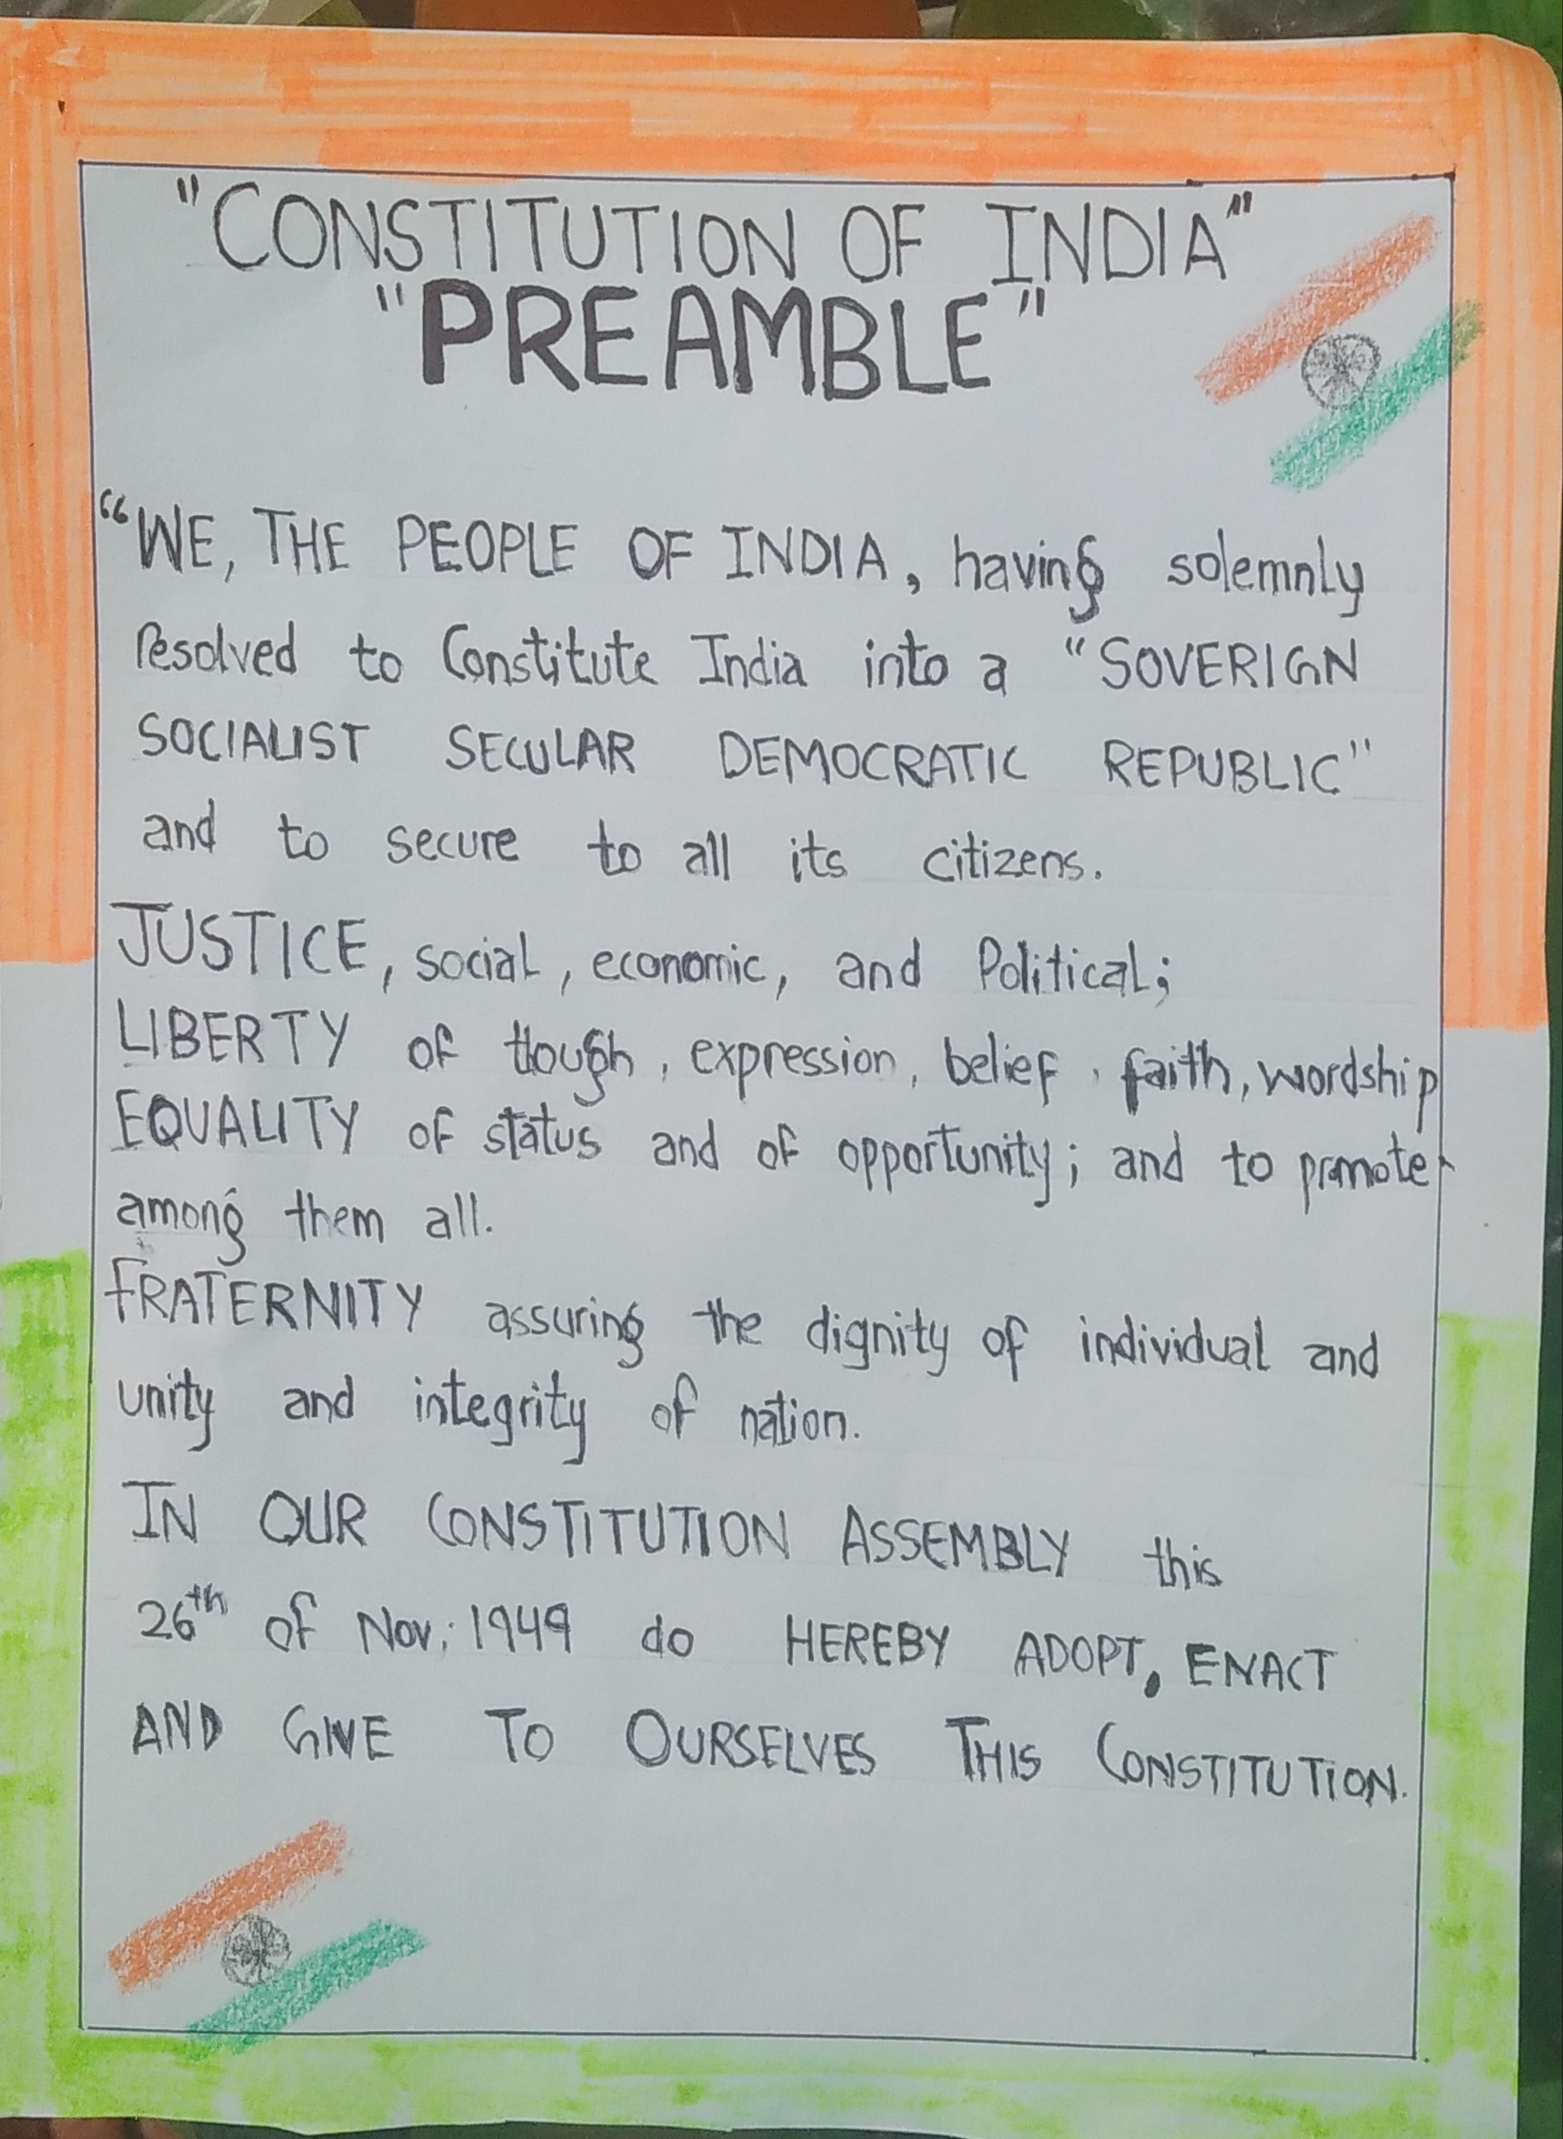 "CONSTITUTION OF INDIA"
"PREAMBLE"
“WE, THE PEOPLE OF INDIA, having solemnly
resolved to Constitute India into a “SOVERIGN
SOCIALIST SECULAR DEMOCRATIC REPUBLIC"
and to secure to all its citizens.
JUSTICE, social, economic, and Political;
LIBERTY of though, expression, belief, faith, wordship
EQUALITY of status and of opportunity; and to promote
among them all.
FRATERNITY assuring the dignity of individual and
unity and integrity of nation.
IN OUR CONSTITUTION ASSEMBLY this
26th of Nov; 1949 do HEREBY ADOPT, ENACT
AND GIVE TO OURSELVES THIS CONSTITUTION.